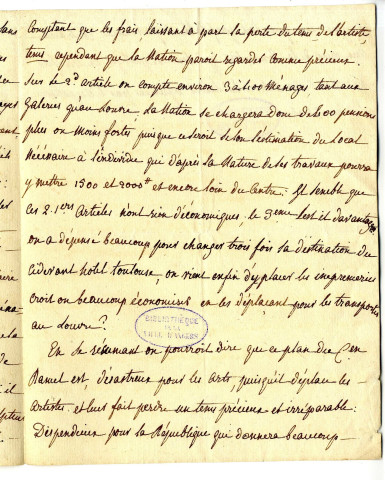 comptant que les frais, laissant à part la perte du tems de l'artiste,
tems cependant que la Nation paroit regarder comme précieux.
Sur le 2d article on compte environ 3 à 400 Ménages tant aux
Galeries qu'au Louvre, la Nation se chargera donc de 400 pensions
plus ou moins fortes puisque ce seroit selon l'estimation du Local
Nécessaire à l'individu qui d'après la Nature de ses travaux pourra
y mettre 1500 et 2000# et encore loin du Centre; Il semble que
ces 2 1ers Articles n'ont rien d'économiques. le 3eme l'est-il davantage
on a dépensé beaucoup pour changer trois fois la destination du
cidevant hôtel toulouse, on vient enfin d'y placer les imprimeries
croit on beaucoup économiser en les déplaçant pour les transporter
au Louvre?
BIBLIOTHÈQUE
DE LA
VILLE D'ANGERS
En se résumant on pourroit dire que ce plan du Cen
Ramel est, désastreux pour les arts, puisqu'il déplace les
artistes, et leur fait perdre un tems précieux et irréparable:
Dispendieux pour la République qui donnera beaucoup